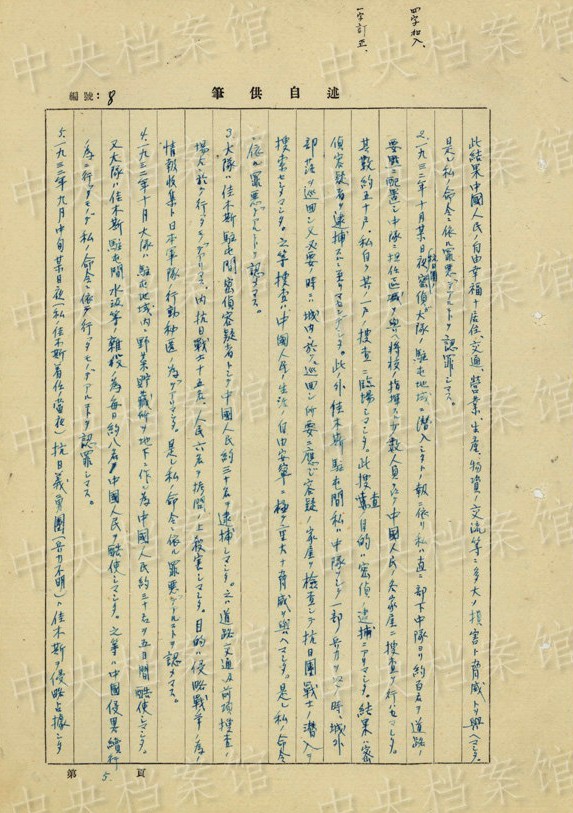 四字加入、
一字訂正、
筆供自述
編號：8
此結果中國人民ノ自由幸福ナ居住、交通、營業、生產、物資ノ交流等ニ多大ノ損害ト脅威トヲ與ヘマシタ。
是レ私ノ命令ニ依ル罪悪デアルコトヲ認罪シマス。
2.一九三二年十月某日夜密偵ガ大隊ノ駐屯地域ニ潜入シタトノ報ニ依リ私ハ直ニ部下中隊ヨリ約百名ヲ道路ノ
要點ニ配置シ中隊ニ担任区域ヲ與ヘ将校ノ指揮スル少数人員ヲ以テ中國人民ノ各家屋ニ捜査ヲ行ハセマシタ。
其数約五十戸、私自ラ其ノ一戸ノ捜査ニ臨場シマシタ。此捜査ノ目的ハ密偵ノ逮捕ニアリマシタ。結果ハ密
偵容疑者ヲ逮捕スルニ至リマセンデシタ。此ノ外佳木斯駐屯間私ハ中隊ヲシテ一部兵力ヲ以テ時々城外
部落ヲ巡回シ又必要ノ時ハ城内ニ於テ巡回シ所要ニ應ジ容疑ノ家屋ヲ檢査シテ抗日團戰士ノ潜入ヲ
捜索セシメマシタ。之等捜査ハ中國人民ノ生活ノ自由安寧ニ極メテ重大ナ脅威ヲ與ヘマシタ。是レ私ノ命令
ニ依ル罪悪デアルコトヲ認メマス。
3.大隊ハ佳木斯駐屯間密偵容疑者トシテ中國人民約三十名ヲ逮捕シマシタ。之ハ道路ノ交通及前項捜査ノ
場合ニ於テ行ツタノデアリマス。内抗日戰士十五名、人民六名ヲ拷問ノ上殺害シマシタ。目的ハ侵略戰爭ノ為ノ
情報收集ト日本軍隊ノ行動秘匿ノ為デアリマシタ。是レ私ノ命令ニ依ル罪悪デアルコトヲ認メマス。
4.一九三二年十月大隊ハ駐屯地域内ニ野菜貯藏所ヲ地下ニ作ル為中國人民約三十名ヲ五日間酷使シマシタ。
又大隊ハ佳木斯駐屯間水汲等ノ雜役ノ為毎日約八名ノ中國人民ヲ酷使シマシタ。之等ハ中國侵略續行
ノ為ニ行ツタモノデ私ノ命令ニ依ツテ行ツタモノデアルコトヲ認罪シマス。
5.一九三二年九月中旬某日夜（私佳木斯着任ノ當夜）抗日義勇團（兵力不明）ハ佳木斯ヲ侵略占據シタ
第5頁
中央档案馆